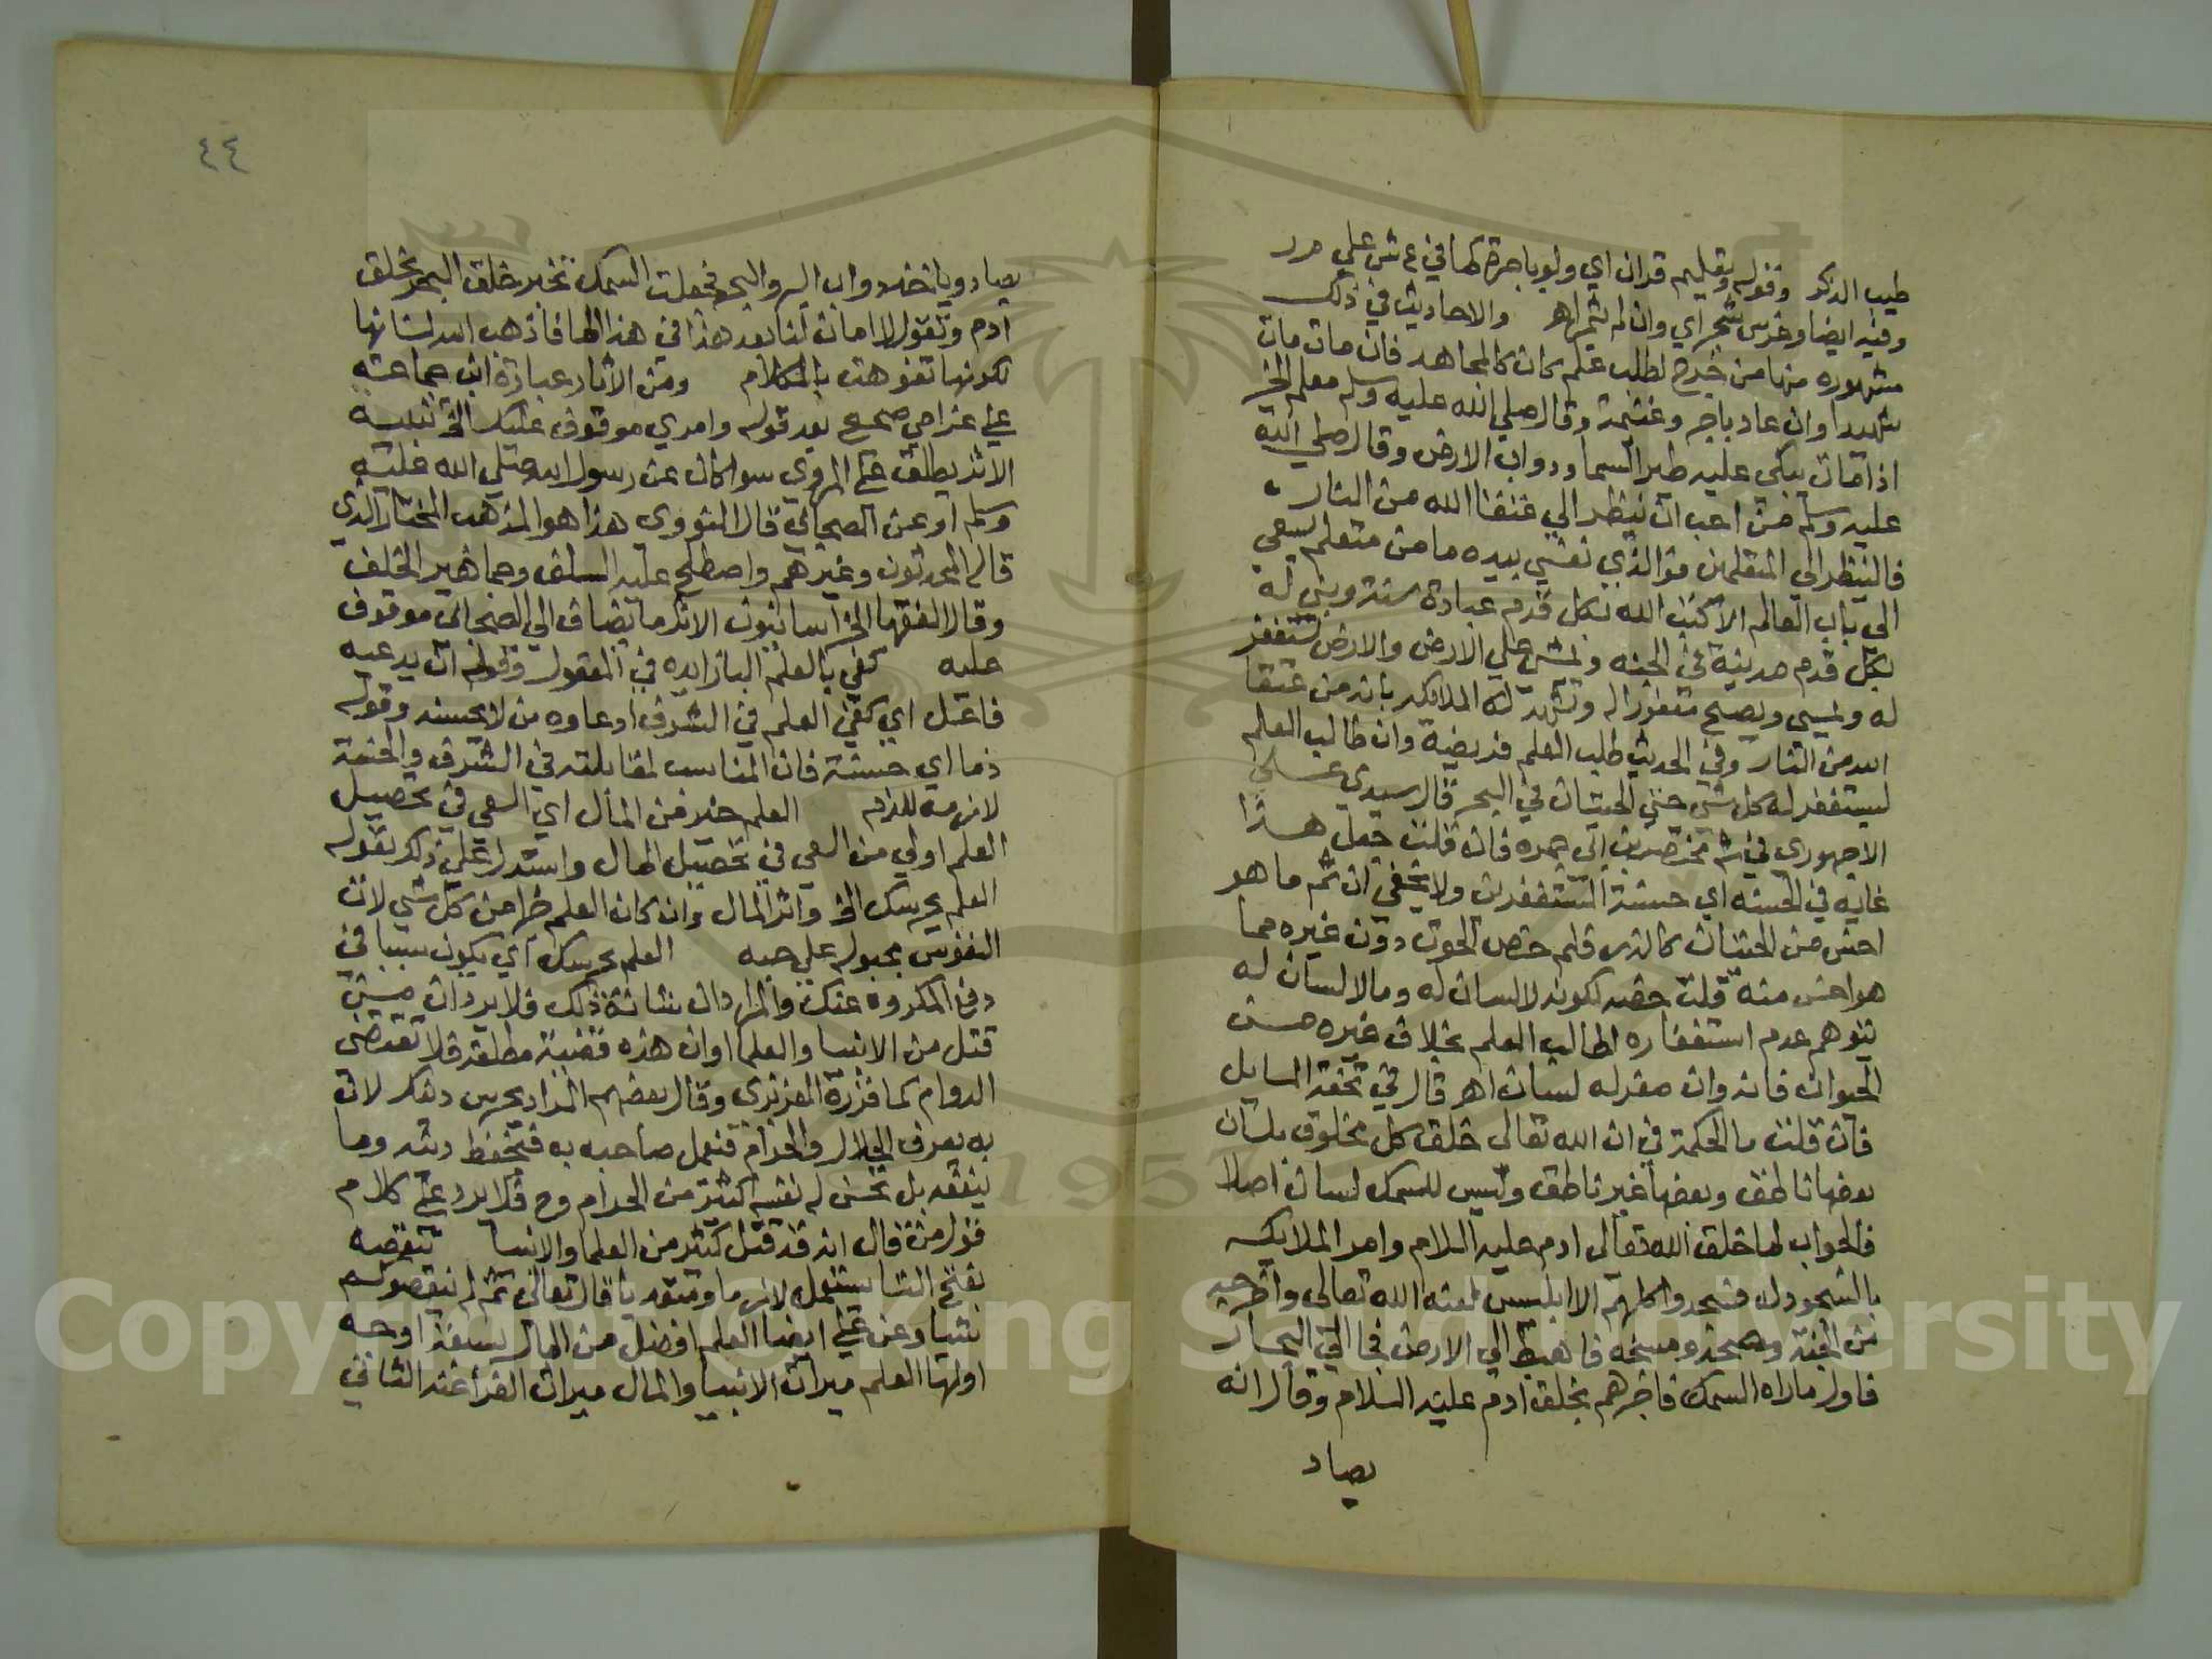 طيب الذكر وقوله وتعليم قران اي ولو باجرة كما في ع ش علي م ر
وفيه ايضا وغرس شجر اي وان لم يثمر اهـ والاحاديث في ذلك
مشهوره منها من خرج لطلب علم كان كالمجاهد فان مات مات
شهيدا وان عاد باجر وغنيمة وقال صلي الله عليه وسلم معلم الخير
اذا مات بكي عليه طير السما ودواب الارض وقال صلي الله
عليه وسلم من احب ان ينظر الي عتقا الله من النار
فالينظر الي المتعلمين فو الذي نفسي بيده ما من متعلم يسعي
الي باب العالم الا كتب الله بكل قدم عبادة سنة وبني له
بكل قدم مدينة في الجنه ويمشي علي الارض والارض تستغفر
له ويمسي ويصبح مغفورا له وتشهد له الملايكه بانه من عتقا
الله من النار وفي الحديث طلب العلم فريضة وان طالب العلم
ليستغفر له كل شي حتي الحيتان في البحر قال سيدي علي
الاجهوري في ش مختصر بن ابي جمره فان قلت جعل هذا
غايه في الخسه اي خسة المستغفرين ولا يخفي ان ثم ما هو
اخس من الحيتان كالذر فلم خص الحوت دون غيره مما
هو اخس منه قلت خصه لكونه لا لسان له وما لا لسان له
يتوهم عدم استغفاره لطالب العلم بخلاف غيره من
الحيوان فانه وان صغر له لسان اهـ قال في تحفة السايل
فان قلت ما الحكمة في ان الله تعالي خلق كل مخلوق بلسان
بعضها ناطق وبعضها غير ناطق وليس للسمك لسان اصلا
فالجواب لما خلق الله تعالي ادم عليه السلام وامر الملايكه
بالسجود له فسجدوا كلهم الا ابليس لعنه الله تعالي واخرجه
من الجنة ومسخه فاهبط الي الارض فجا الي البحار
فاول ما راه السمك فاخبرهم بخلق ادم عليه السلام وقال انه
يصاد
٤٤
يصاد وياخذ دواب البر والبحر فجعلت السمك تخبر خلق البحر بخلق
ادم وتقول لا امان لنا بعد هذا في هذا الما فاذهب الله لسانها
لكونها تفوهت بالكلام ومن الاثار عبارة ابن جماعة
علي غرامي صحيح بعد قوله وامري موقوف عليك الخ تنبيه
الاثر يطلق علي المروي سوا كان عن رسول الله صلي الله عليه
وسلم او عن الصحابي قال النووي هذا هو المذهب المختار الذي
قاله المحدثون وغيرهم واصطلح عليه السلف وجماهير الخلف
وقال الفقها الخراسانيون الاثر ما يضاف الي الصحابي موقوف
عليه كفي بالعلم البا زايده في المعقول وقوله ان يدعيه
فاعل اي كفي العلم في الشرف ادعاوه من لا يحسنه وقوله
ذما اي خسة فان المناسب لمقابلته في الشرف والخسة
لازمة للذم العلم خير من المال اي السعي في تحصيل
العلم اولي من السعي في تحصيل المال واستدل علي ذلك بقوله
العلم يحرسك الخ واثر المال وان كان العلم خيرا من كل شي لان
النفوس مجبوله علي حبه العلم يحرسك اي يكون سببا في
دفع المكروه عنك والمراد ان شانه ذلك فلا يرد ان من
قتل من الانبيا والعلما او ان هذه قضية مطلقه فلا تقتضي
الدوام كما قرره العزيزي وقال بعضهم المراد يحرس دينك لان
به يعرف الحلال والحرام فيعمل صاحبه به فيحفظ دينه وما
ينفقه بل يحسن له نفسه اكثر من الحرام وح فلا يرد علي كلام
قول من قال انه قد قتل كثير من العلما والانبيا تنقصه
بفتح التا ستعمل لازما ومتعديا قال تعالي ثم لم ينقصوكم
شيا وعن علي ايضا العلم افضل من المال بسبعة اوجه
اولها العلم ميراث الانبيا والمال ميراث الفراعنه الثاني
Copyright © King Saud University
1957